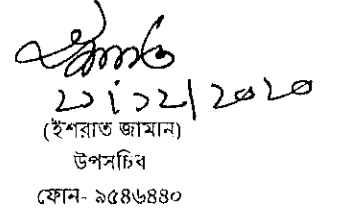 ২১।১২।২০২০
(ইশরাত জামান)
উপসচিব
ফোন- ৯৫৪৬৪৪০